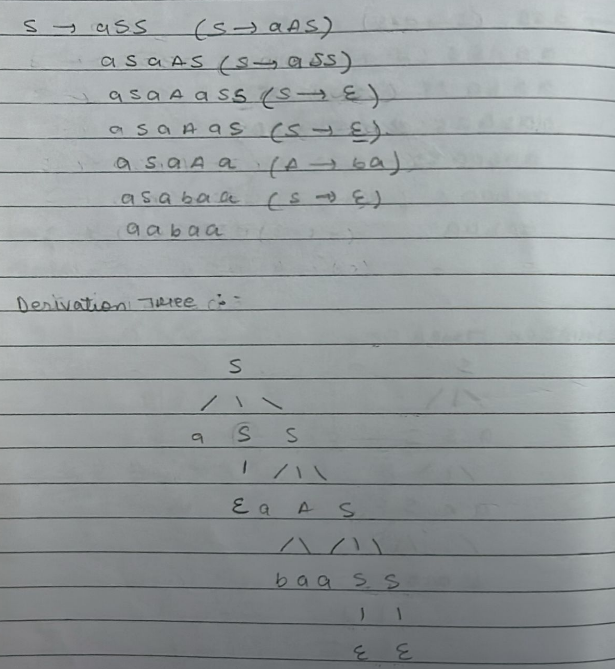 S → aSS (S → aAS)
aSaAS (S → aSS)
aSaAaSS (S → ε)
aSaAaS (S → ε)
aSaAa (A → ba)
aSabaa (S → ε)
aabaa
Derivation Tree :-
S
a S S
ε a A S
b a a S S
ε ε